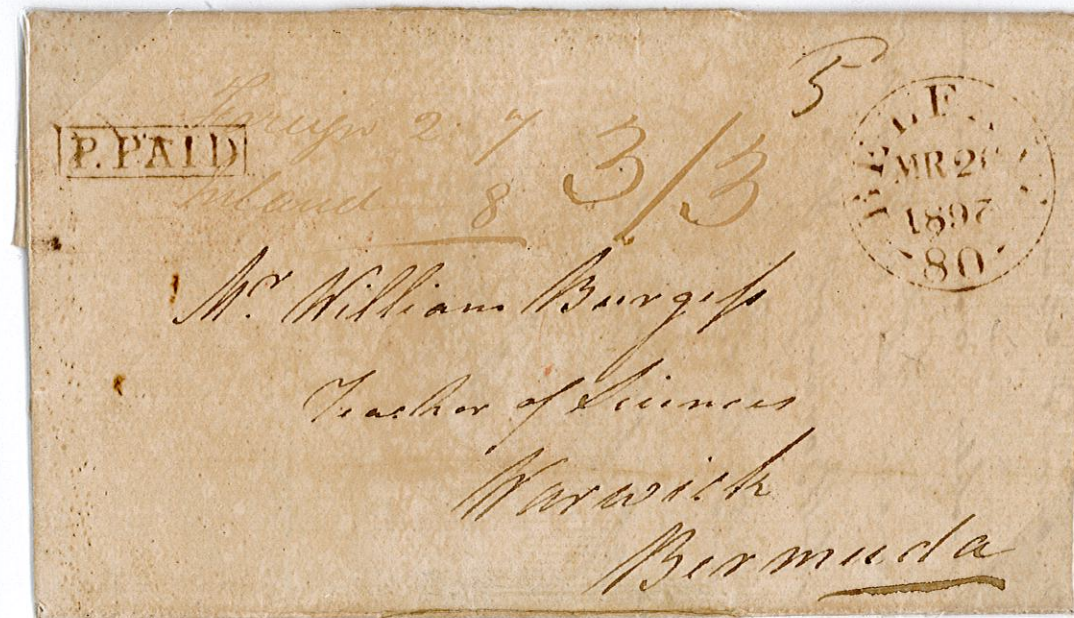 5
P. PAID
Foreign 2 . 7
Inland 8
3/3
MR 2
80
Mr. William Burgess
Teacher of Sciences
Warwick
Bermuda